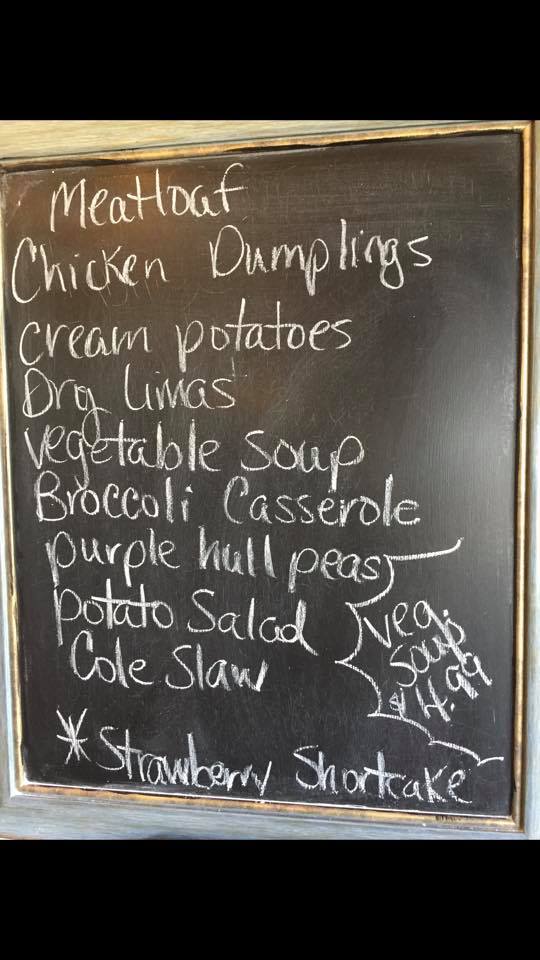 Meatloaf
Chicken Dumplings
cream potatoes
Dry limas
vegetable soup
Broccoli Casserole
purple hull peas
potato Salad
Cole Slaw
veg.
soup
$4.99
*Strawberry Shortcake